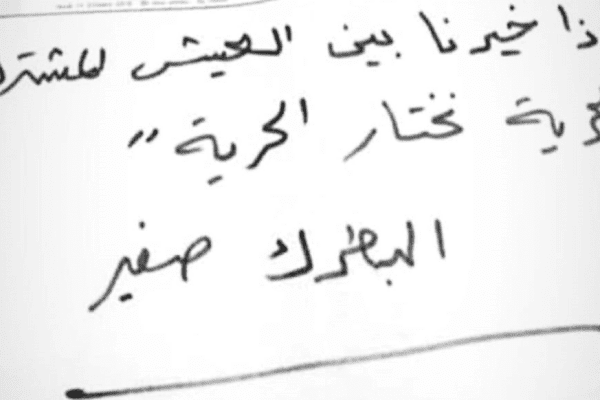 ذا خيرنا بين العيش المشتر
حرية نختار الحرية"
البطرك صفير